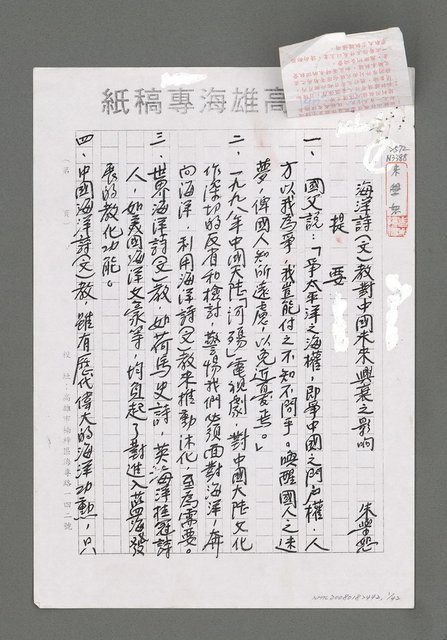 高雄海專稿紙
海洋詩(文)教對中國未來興衰之影响
朱學恕
提要
一、國父說：「爭太平洋之海權，即爭中國之門戶權，人
方以我為爭，我豈能付之不知不問乎。喚醒國人之迷
夢，俾國人知所遠慮，以免近憂焉。」
二、一九八八年中國大陸「河殤」電視劇，對中國大陸文化
作深切的反省和檢討，警惕我們必須面對海洋，奔
向海洋，利用海洋詩(文)教來推動沐化，至為需要。
三、世界海洋詩(文)教，如荷馬史詩，英海洋桂冠詩
人，如美國海洋文豪等，均負起了對進入藍海發
展的教化功能。
四、中國海洋詩(文)教，雖有歷代偉大的海洋功勳，只
(第 頁)
校址：高雄市楠梓區海專路一四二號
朱學恕
NMTL20080182442, 1/42